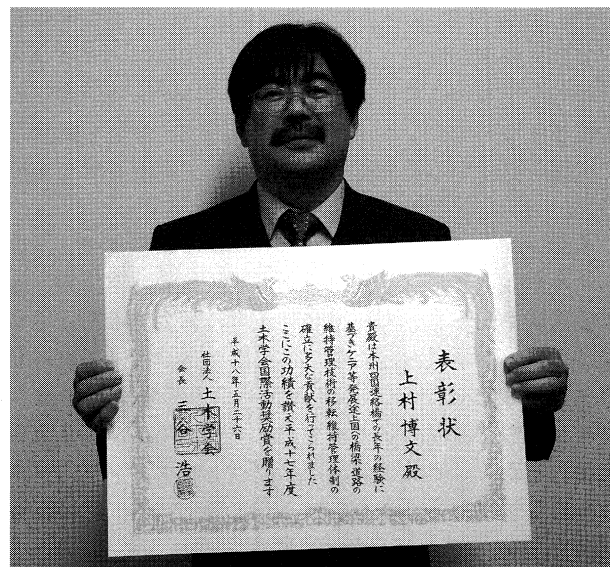 表彰状
上村博文殿
貴殿は本州四国連絡橋での長年の経験に
基づきケニア等発展途上国の橋梁、道路の
維持管理技術の移転、維持管理体制の
確立に多大な貢献を行ってこられました
ここにこの功績を讃え平成十七年度
土木学会国際活動奨励賞を贈ります
平成十八年五月二十六日
社団法人 土木学会
会長 三谷 浩